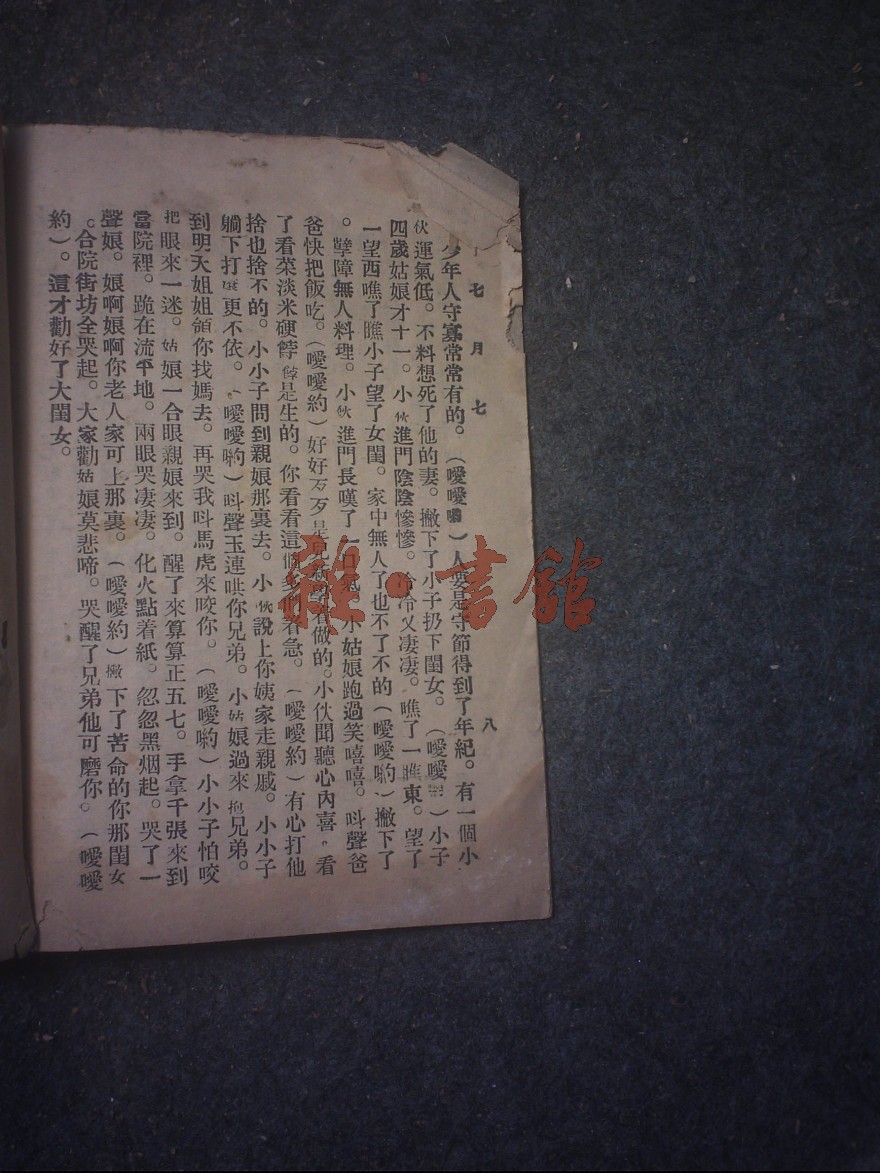 七月七
八
少年人守寡常常有的。(噯噯喲)人要是守節得到了年紀。有一個小
伙運氣低。不料想死了他的妻。撇下了小子扔下閨女。(噯噯)小子
四歲姑娘才十一。小伙進門陰陰慘慘。冷冷又凄凄。瞧了一瞧東。望了
一望西瞧了瞧小子望了女閨。家中無人了也不了不的(噯噯喲)撇下了
。孽障無人料理。小伙進門長嘆了一口氣。小姑娘跑過笑嘻嘻。呌聲爸
爸快把飯吃。(噯噯約)好好歹歹是兒做的。小伙聞聽心內喜。看
了看菜淡米硬餑餑是生的。你看看這個爹們着急。(噯噯約)有心打他
捨也捨不的。小小子問到親娘那裏去。小伙說上你姨家走親戚。小小子
躺下打更不依。(噯噯喲)呌聲玉連哄你兄弟。小姑娘過來抱兄弟。
到明天姐姐領你找媽去。再哭我呌馬虎來咬你。(噯噯喲)小小子怕咬
把眼來一迷。姑娘一合眼親娘來到。醒了來算算正五七。手拿千張來到
當院裡。跪在流平地。兩眼哭凄凄。化火點着紙。忽忽黑烟起。哭了一
聲娘。娘啊娘啊你老人家可上那裏。(噯噯約)撇下了苦命的你那閨女
。合院街坊全哭起。大家勸姑娘莫悲啼。哭醒了兄弟他可磨你。(噯噯
約)。這才勸好了大閨女。
雜·書館